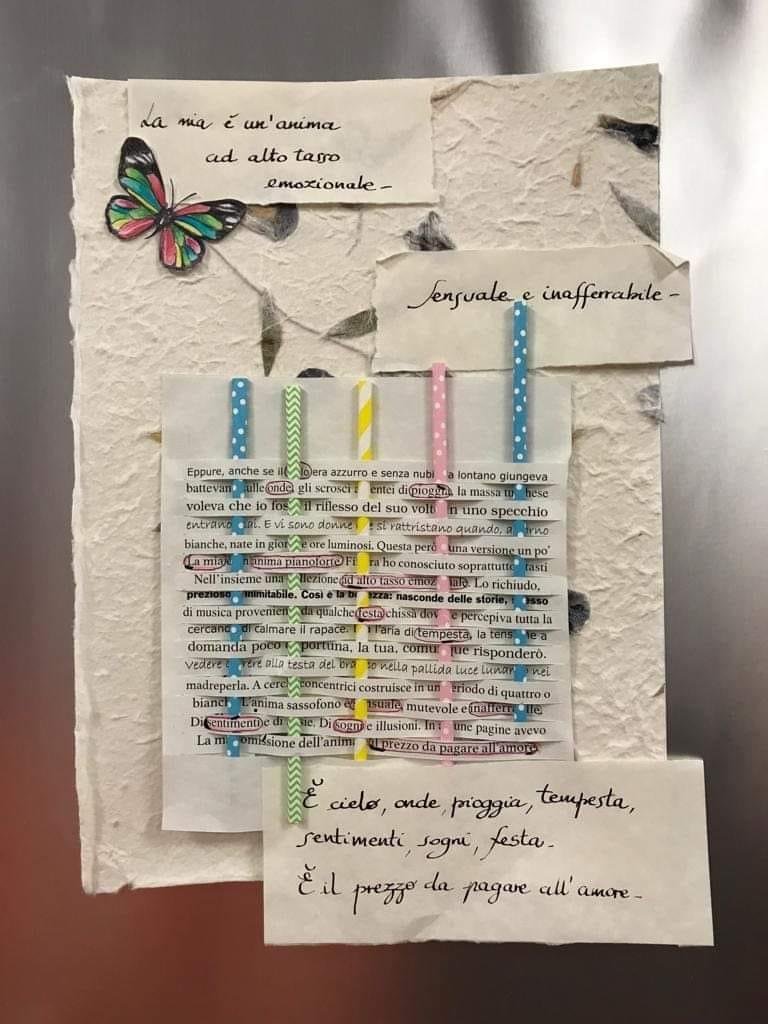 La mia è un'anima
ad alto tasso
emozionale-
Sensuale e inafferrabile-
Eppure, anche se il lo era azzurro e senza nubi a lontano giungeva
battevan sulle onde, gli scrosci entei di pioggia, la massa m hese
voleva che io fos il riflesso del suo volt n uno specchio
entrano ai. E vi sono donne e si rattristano quando, a orno
bianche, nate in gior e ore luminosi. Questa però una versione un po'
La mia n anima pianoforte Fi ra ho conosciuto soprattutto tasti
Nell'insieme una llezione ad alto tasso emoz ale. Lo richiudo,
prezioso inimitabile. Così è la b zza: nasconde delle storie, sso
di musica provenien da qualche festa chissà dov e percepiva tutta la
cercand di calmare il rapace. l'aria di tempesta, la tens e a
domanda poco portuna, la tua, comu que risponderò.
Vedere c rere alla testa del bra co nella pallida luce lunar nei
madreperla. A cerc concentrici costruisce in un eriodo di quattro o
bianc L'anima sassofono è suale, mutevole e inafferr le.
Di sentimenti e di ie. Di sogni e illusioni. In une pagine avevo
La mi omissione dell'anim il prezzo da pagare all'amore
È cielo, onde, pioggia, tempesta,
sentimenti, sogni, festa-
È il prezzo da pagare all'amore-